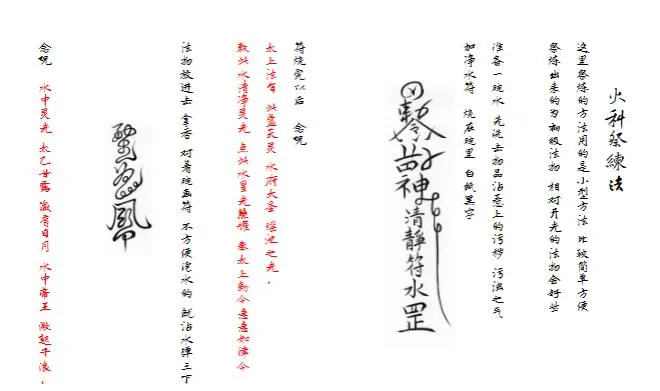 火科祭練法
这里祭炼的方法用的是小型方法 比较简单方便
祭炼出来的为初级法物 相对开光的法物会好些
准备一碗水 先洗去物品沾惹上的污秽 污浊之气
加净水符 烧在碗里 白纸黑字
神清靜符水罡
符烧完以后 念呪
太上法旨 天灵 水府大圣 瑶池之光．
敕此水清净灵光 点此水星光 奉太上勅令急急如律令
法物放进去 拿香 对着碗画符 不方便泡水的 就沾水弹三下
念呪 水中灵光 太乙甘露 日月 水中帝王 激起千浪．